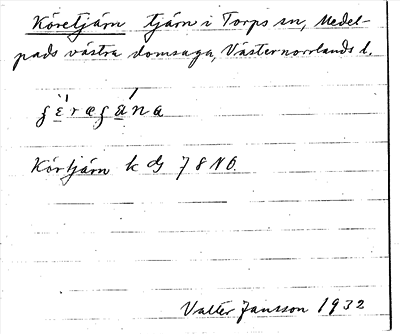 Köretjärn tjärn i Torps sn, Medel-
pads västra domsaga, Västernorrlands l.
Körtjärn k dj 78 NO.
Valter Jansson 1932